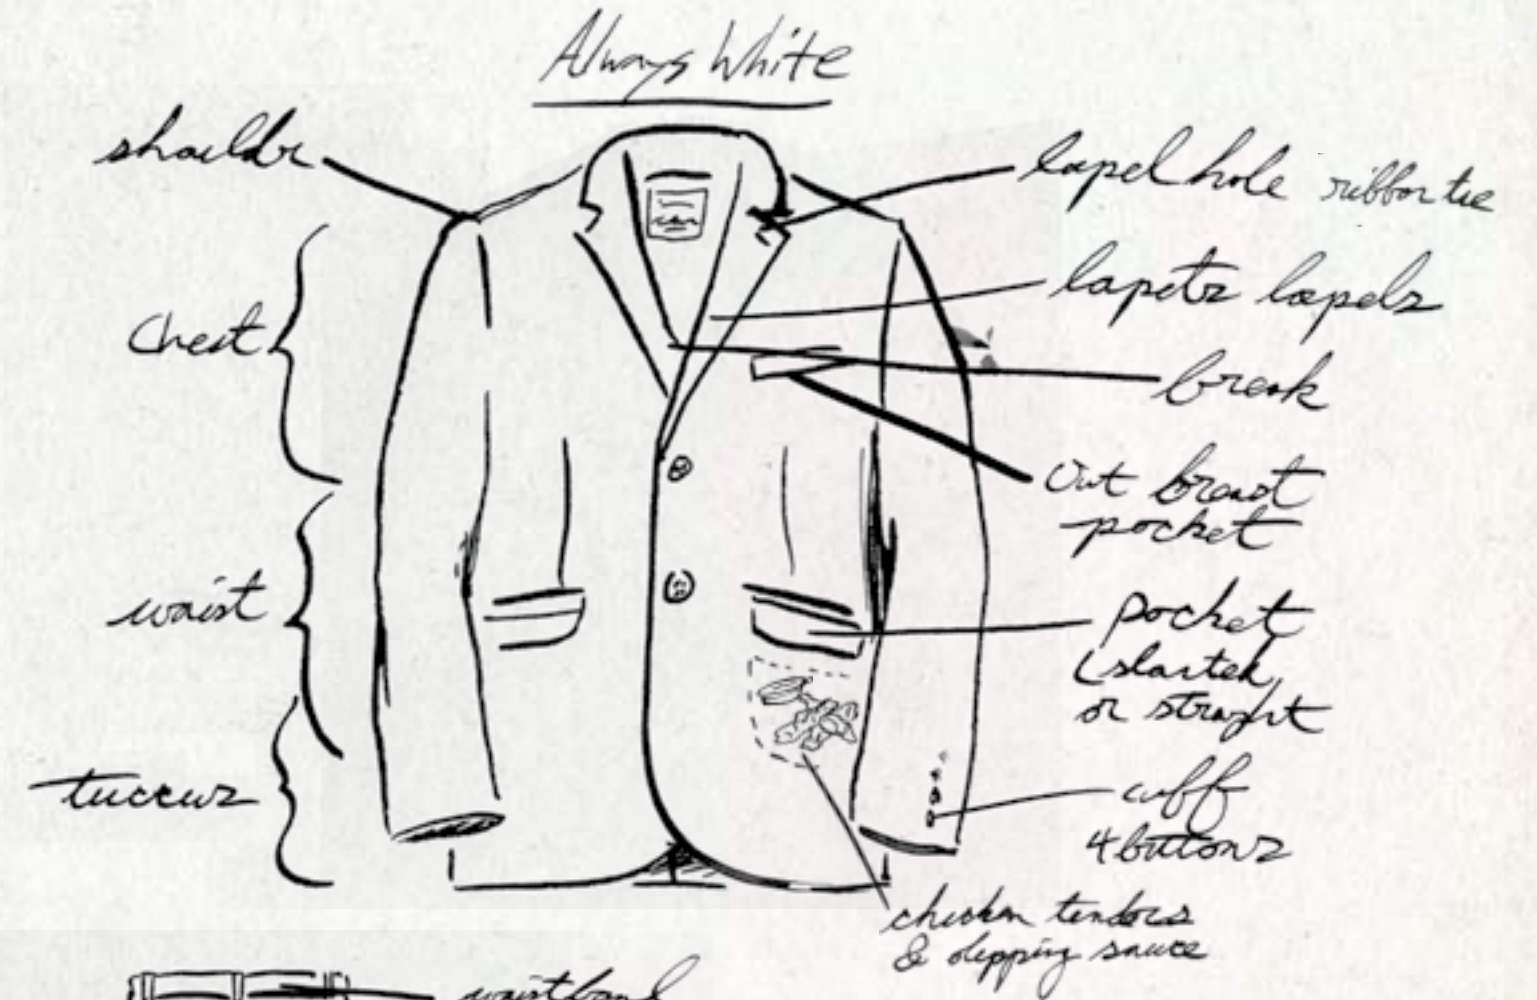 Always White
shouldr
lapel hole ribbon tie
Chest
lapels
break
Out breast
pocket
waist
pocket
(slanted
or straight
cuff
4 buttons
chicken tenders
& dipping sauce
waistband